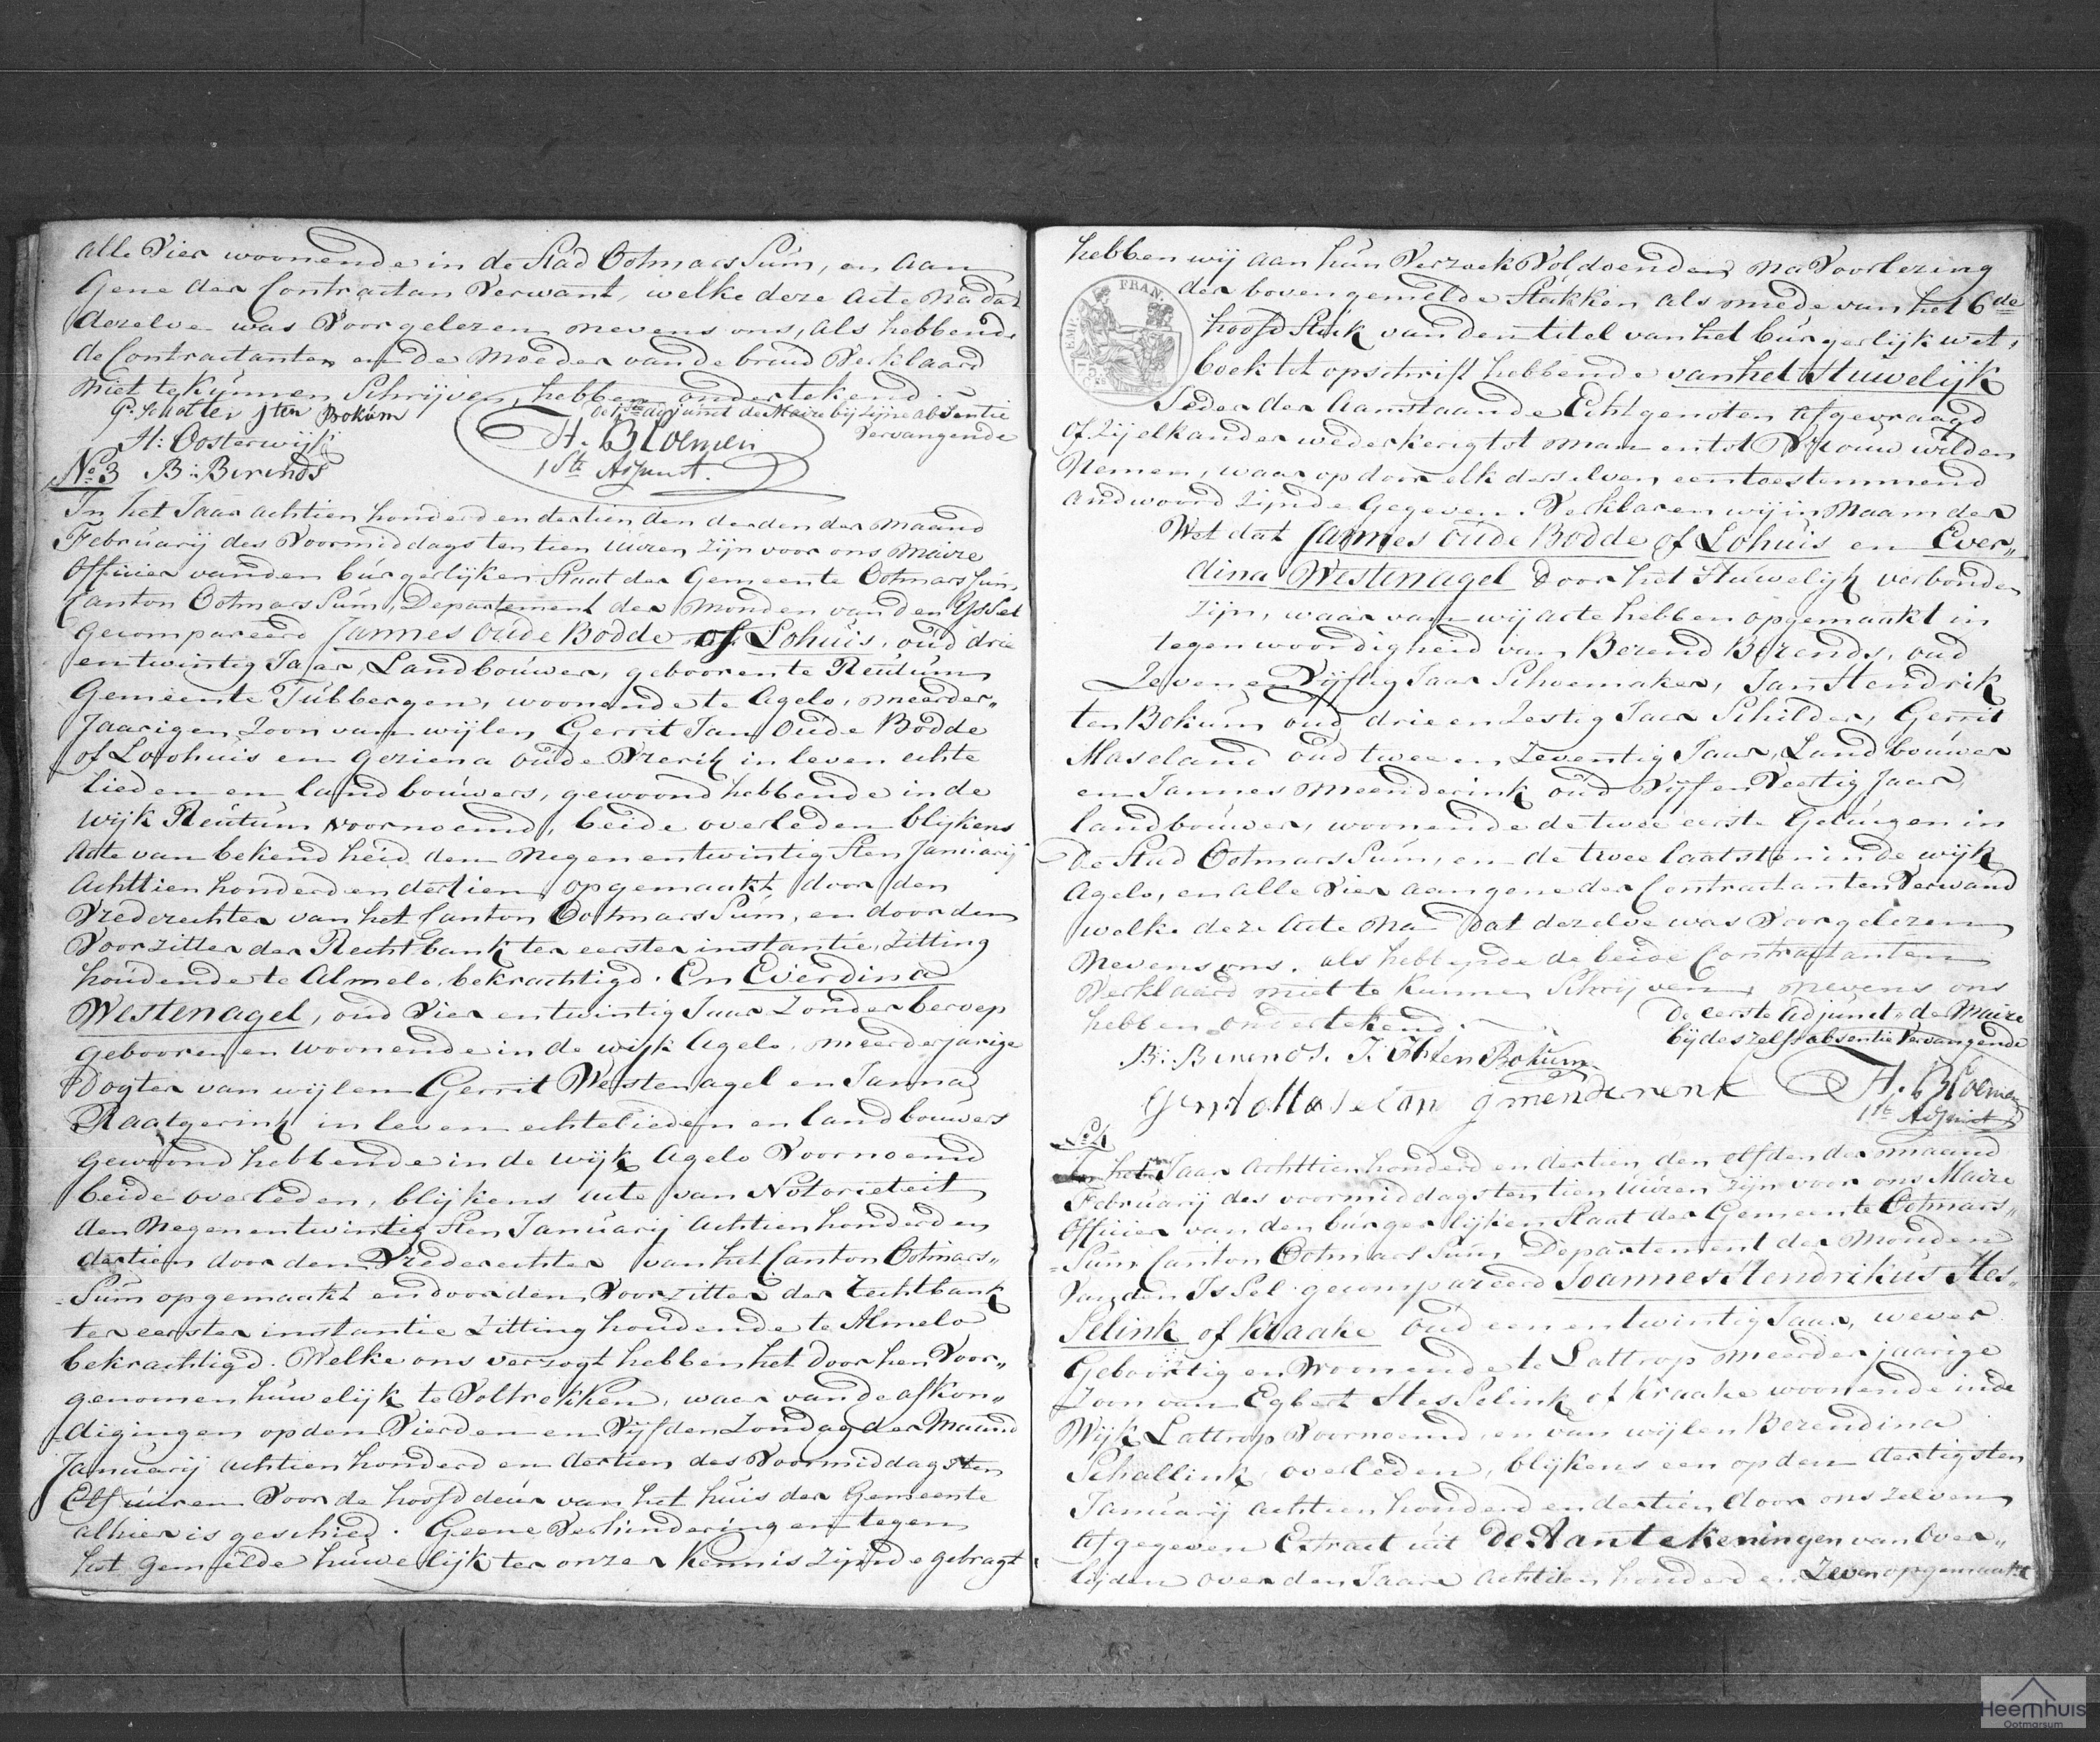 alle Vier woonende in de Stad OotmarsSum, en aan
Gene der Contractan Verwant, welke deze acte na dat
dezelve was Voorgelezen nevens ons, als hebbende
de Contractanten en de Moeder van de bruid Verklaard
niet te kunnen Schrijven, hebben ondertekend.
de 1ste adjunct de Maire bij zijne absentie
Vervangende
Jten Bokum
H: Oosterwijk
H. Bloemen
1ste Adjunct.
No 3 B: Berends
In het Jaar achtien honderd en dertien den derden der maand
Februarij des Voormiddags ten tien uuren zijn voor ons Maire
Officier van den burgerlijken Staat der Gemeente OotmarsSum,
Canton OotmarsSum, Departement der Monden van den YsSel
gecompareerd Jannes oude Bodde of Lohuis, oud drie
en twintig Jaar, Landbouwer, geboren te Reutum
Gemeente Tubbergen, woonende te Agelo, meerder„
Jaarigen Zoon van wijlen Gerrit Jan Oude Bodde
of Loohuis en Geziena oude Vrerik in leven echte
lieden en landbouwers, gewoond hebbende in de
wijk Reutum voornoemd, beide overleden blijkens
Acte van bekendheid den Negen en twintigsten Januarij
Achttien honderd en dertien opgemaakt door den
Vrederechter van het Canton OotmarsSum, en door den
Voorzitter der Rechtbank ter eerster instantie, Zitting
houdende te Almelo, bekrachtigd. En Everdina
Westenagel, oud Vier en twintig Jaar Zonder beroep
gebooren en woonende in de wijk Agelo, meerderjarige
Dogter van wijlen Gerrit Westenagel en Janna
Raatgerink in leven echtelieden en landbouwers
gewoond hebbende in de wijk Agelo Voornoemd
beide overleden, blijkens acte van Notorieteit
den Negen en twintig sten Januarij achtien honderd en
dertien door den Vrederechter van het Canton Ootmars„
Sum opgemaakt en door den Voorzitter der rechtbank
ter eerster instantie Zitting houdende te Almelo
bekrachtigd. Welke ons verzogt hebben het door hen Voor„
genomen huwelijk te Voltrekken, waar van de afkon„
digingen op den Vierden en Vijfden Zondag der Maand
Januarij achtien honderd en dertien des Voormiddags ten
Elf uuren Voor de hoofddeur van het huis der Gemeente
alhier is geschied. Geene Verhinderingen tegen
het gemelde huwelijk ter onzer Kennis zijnde gebragt
hebben wij aan hun Verzoek Voldoende na Voorlezing
der bovengemelde Stukken als mede van het 6de
hoofd Stuk van den titel van het burgerlijk wet,
boek tot opschrift hebbende van het Huwelijk
Jeder der Aanstaande Echtgenoten afgevraagd
of zij elkander wederkerig tot man en tot Vrouw wilden
Nemen, waar op door elk derselven een toestemmend
andwoord zijnde Gegeven. Verklaren wij in Naam der
Wet dat Jannes oude Bodde of Lohuis en Ever„
dina Westenagel door het Huwelijk verbonden
zijn, waar van wij acte hebben opgemaakt in
tegenwoordigheid van Berend Berends, oud
Zeven en Vijftig Jaar Schoemaker, Jan Hendrik
ten Bokum oud drie en Zestig Jaar Schilder, Gerrit
Maseland oud twee en Zeventig Jaar, Landbouwer
en Jannes Meenderink oud Vijf en Veertig Jaar,
landbouwer, woonende de twee eerste Getuigen in
de Stad OotmarsSum, en de twee laatsten in de wijk
Agelo, en alle Vier aan gene der Contractanten Verwand
welke deze Acte Na dat dezelve was Voorgelezen
Nevens ons, als hebbende de beide Contractanten
Verklaard niet te kunnen Schrijven, nevens ons
hebben ondertekend.
de eerste Adjunct de Maire
bij deszelfs absentie Vervangende
B: Berends. ten Bokum
H. Bloemen
1ste Adjunct
No 4
In het Jaar Achttien honderd en dertien den elfden der maand
Februarij des voormiddags ten tien uuren zijn voor ons Maire
Officier van den burgerlijken Staat der Gemeente Ootmars„
Sum Canton OotmarsSum, Departement der Monden
Van den IsSel gecompareerd Joannes Hendrikus Hes„
Selink of Kraake oud een en twintig Jaar, wever
Geboortig en Woonende te Lattrop meerderjaarige
Zoon van Egbert HesSelink of Kraake woonende in de
Wijk Lattrop Voornoemd, en van wijlen Berendina
Schallink, overleden, blijkens een op den dertigsten
Januarij Achtien honderd en dertien door ons zelven
Afgegeven Extract uit de Aantekeningen van Over„
lijden over den Jaare achtien honderd en Zeven opgemaakt
EMP. FRAN.
75
Heemhuis
Ootmarsum